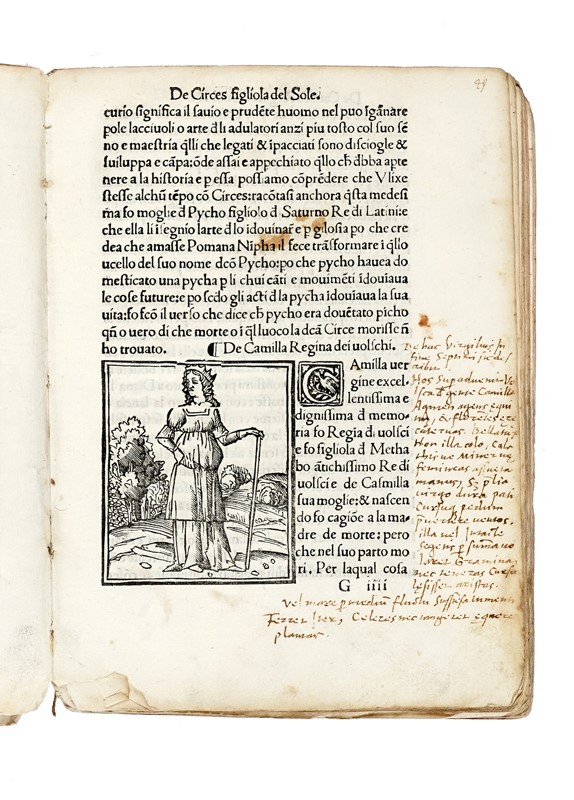 De Circes figliola del Sole.
curio significa il sauio e prudẽte huomo nel puo ĩgãnare
pole lacciuoli o arte dli adulatori anzi piu tosto col suo sẽ
no e maestria qlli che legati & ĩpacciati sono disciogle &
suiluppa e cãpa: õde assai e appechiato qllo ch dbba apte
nere a la historia e p essa possamo cõprẽdere che Vlixe
stesse alchũ tẽpo cõ Circes: racõtasi anchora qsta medesi
ma fo moglie d Pycho figliolo d Saturno Re di Latini: e
che ella li ĩsegnio larte d lo idouinar e p gilosia po che cre
dea che amasse Pomana Nipha il fece trãsformare i qllo
ucello del suo nome dcõ Pycho: po che pycho hauea do
mesticato una pycha p li chui cãti e mouimẽti ĩdouiaua
le cose future: e po scdo gli acti d la pycha idouiaua la sua
uita: fo fcõ il uerso che dice ch pycho era douẽtato picho
qñ o uero di che morte o i ql luoco la dcã Circe morisse ñ
ho trouato. De Camilla Regina dei uolschi.
CAmilla uer
gine excel
lentissima e
dignissima d memo
ria fo Regia di uolsci
e fo figliola d Metha
bo ãtichissimo Re di
uolsci e de Casmilla
sua moglie: & nascen
do fo cagiõe a la ma
dre de morte: pero
che nel suo parto mo
ri. Per laqual cosa
G iiii
De hac Virgilius in
fine Septimi
Hos super aduenit Vo
lsca d gente Camilla
Agmen agens equi
tum & florentes ere
cateruas. Bellatrix
Non illa colo, cala
thisue Mineruę
femineas assueta
manus, Sz prelia
virgo dura pati
cursuq pedum
pvertere ventos.
illa vel Intactę
segetis p summa vo
laret Gramina
nec teneras Cursu
lęsisset aristas.
Vel mare p medium fluctu suspensa tumenti
Ferret Iter, Celeres nec tangeret ęquore
plantas.